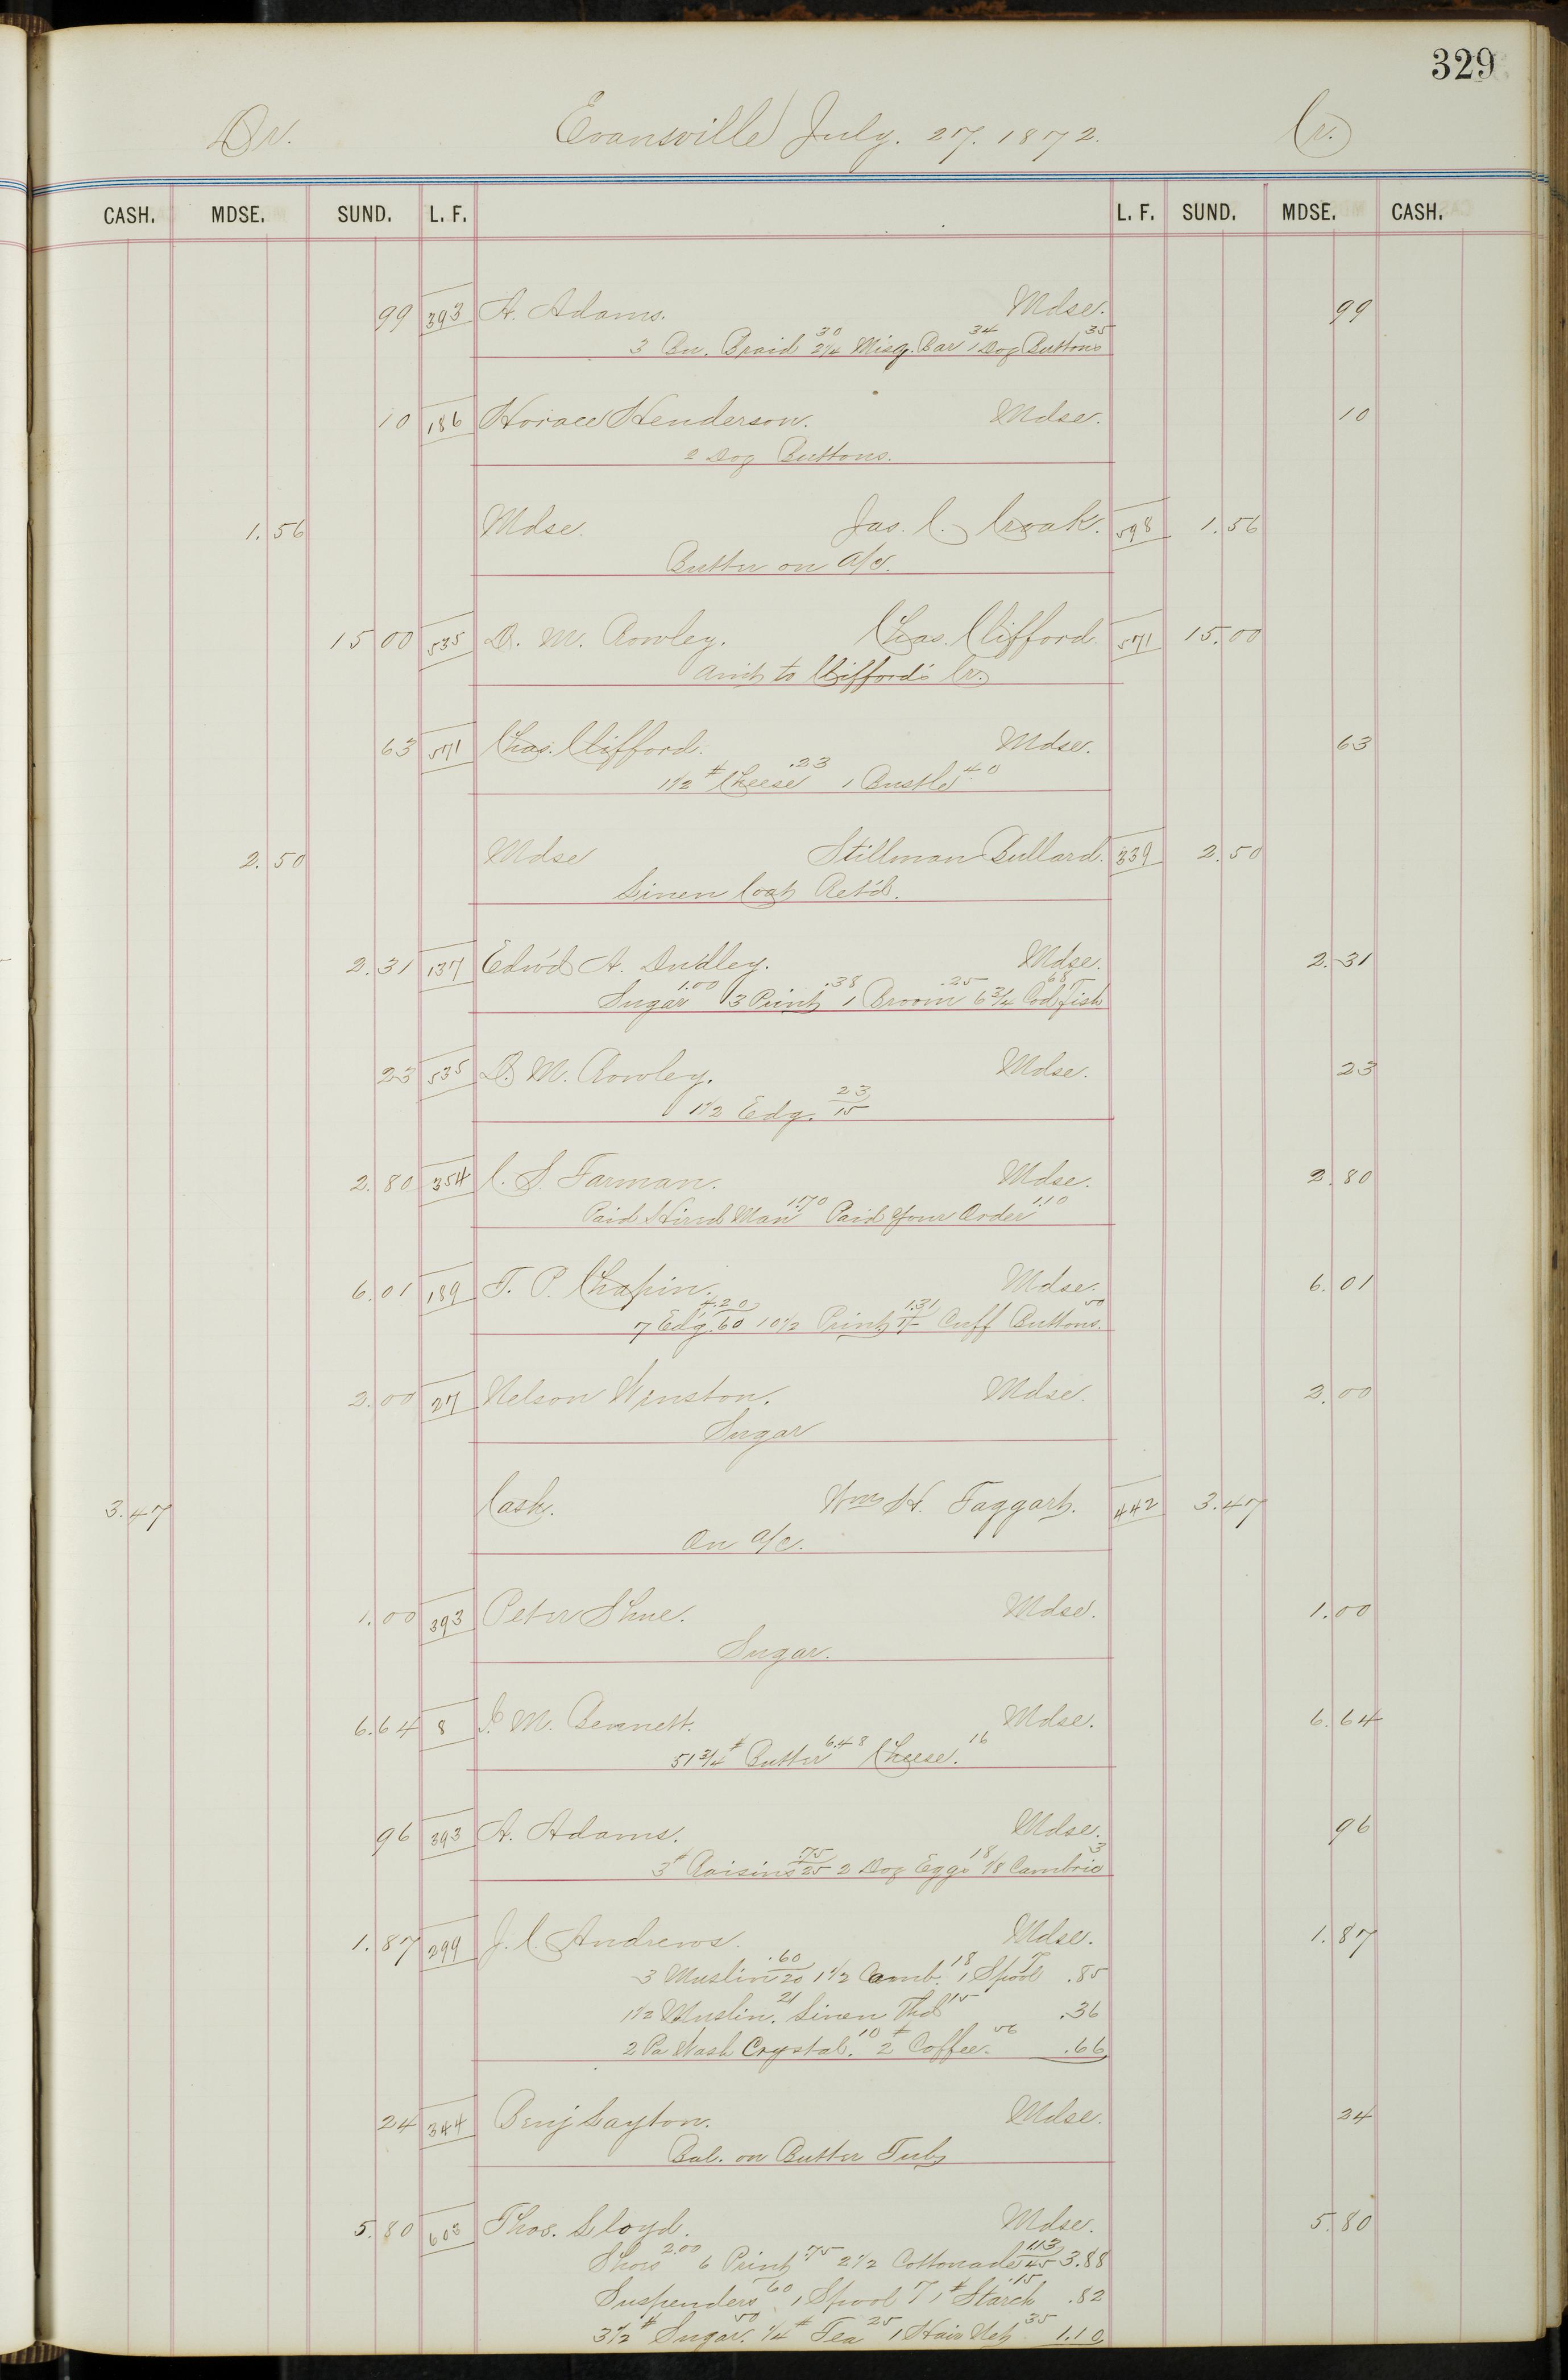 329
Dr. Evansville July. 27. 1872. Cr.
CASH. MDSE. SUND. L. F. L. F. SUND. MDSE. CASH.
99 393 A. Adams. Mdse. 99
3 Bu. Braid 30 2 1/4 Misq. Bar 34 1 Doz Buttons 35
10 186 Horace Henderson. Mdse. 10
2 Doz Buttons.
1.56 Mdse. Jas. C. Croak. 598 1.56
Butter on a/c.
15 00 535 D. M. Rowley. Chas. Clifford. 571 15.00
Amt to Clifford's Cr.
63 571 Chas. Clifford. Mdse. 63
1 1/2 # Cheese .23 1 Bustle 40
2.50 Mdse Stillman Bullard. 339 2.50
Linen Coat Ret'd.
2.31 137 Edw'd A. Dudley. Mdse. 2.31
Sugar 1.00 3 Print .38 1 Broom .25 6 3/4 Cod Fish 68
23 535 D. M. Rowley. Mdse. 23
1 1/2 Edg. 23/15
2.80 354 C. S. Farman. Mdse. 2.80
Paid Hired Man 1.70 Paid Your Order 1.10
6.01 189 T. P. Chapin. Mdse. 6.01
7 Edg. 4.20/60 10 1/2 Print 1.31 Cuff Buttons. 50
2.00 27 Nelson Winston. Mdse. 2.00
Sugar
3.47 Cash. Wm H. Taggart. 442 3.47
On a/c.
1.00 393 Peter Shue. Mdse. 1.00
Sugar.
6.64 8 I. M. Bennett. Mdse. 6.64
51 3/4 # Butter 6.48 Cheese. 16
96 393 A. Adams. Mdse. 96
3 # Raisins .75/25 2 Doz Eggs 18 1/8 Cambric 3
1.87 299 J. C. Andrews. Mdse. 1.87
3 Muslin .60/20 1 1/2 Camb. 18 1 Spool 7 .85
1 1/2 Muslin. 21 Linen Thd 15 .36
2 Pa Wash Crystal. 10 2 # Coffee. 56 .66
24 344 Benj Layton. Mdse. 24
Bal. on Butter Tub
5.80 603 Thos. Lloyd. Mdse. 5.80
Shoes 2.00 6 Print .75 2 1/2 Cottonade 1.13/45 3.88
Suspenders 60 1 Spool 7 1 # Starch .15 .82
3 1/2 # Sugar. 50 1/4 # Tea 25 1 Hair Net 35 1.10